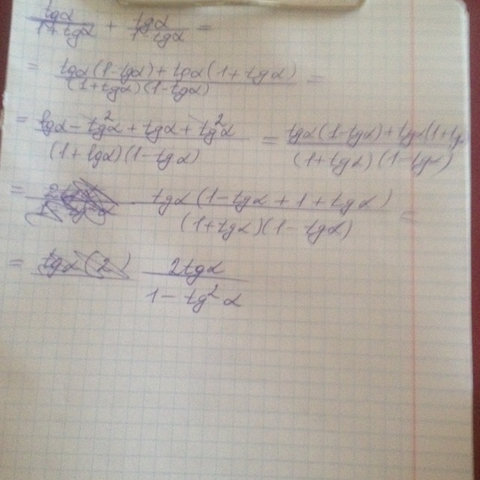 tgα/(1+tgα) + tgα/(1-tgα) =
= (tgα(1-tgα)+tgα(1+tgα))/((1+tgα)(1-tgα)) =
= (tgα-tg²α+tgα+tg²α)/((1+tgα)(1-tgα)) = (tgα(1-tgα)+tgα(1+tg/((1+tgα)(1-tgα)
= (tgα(1-tgα+1+tgα))/((1+tgα)(1-tgα)) =
= tgα(2) 2tgα/(1-tg²α)